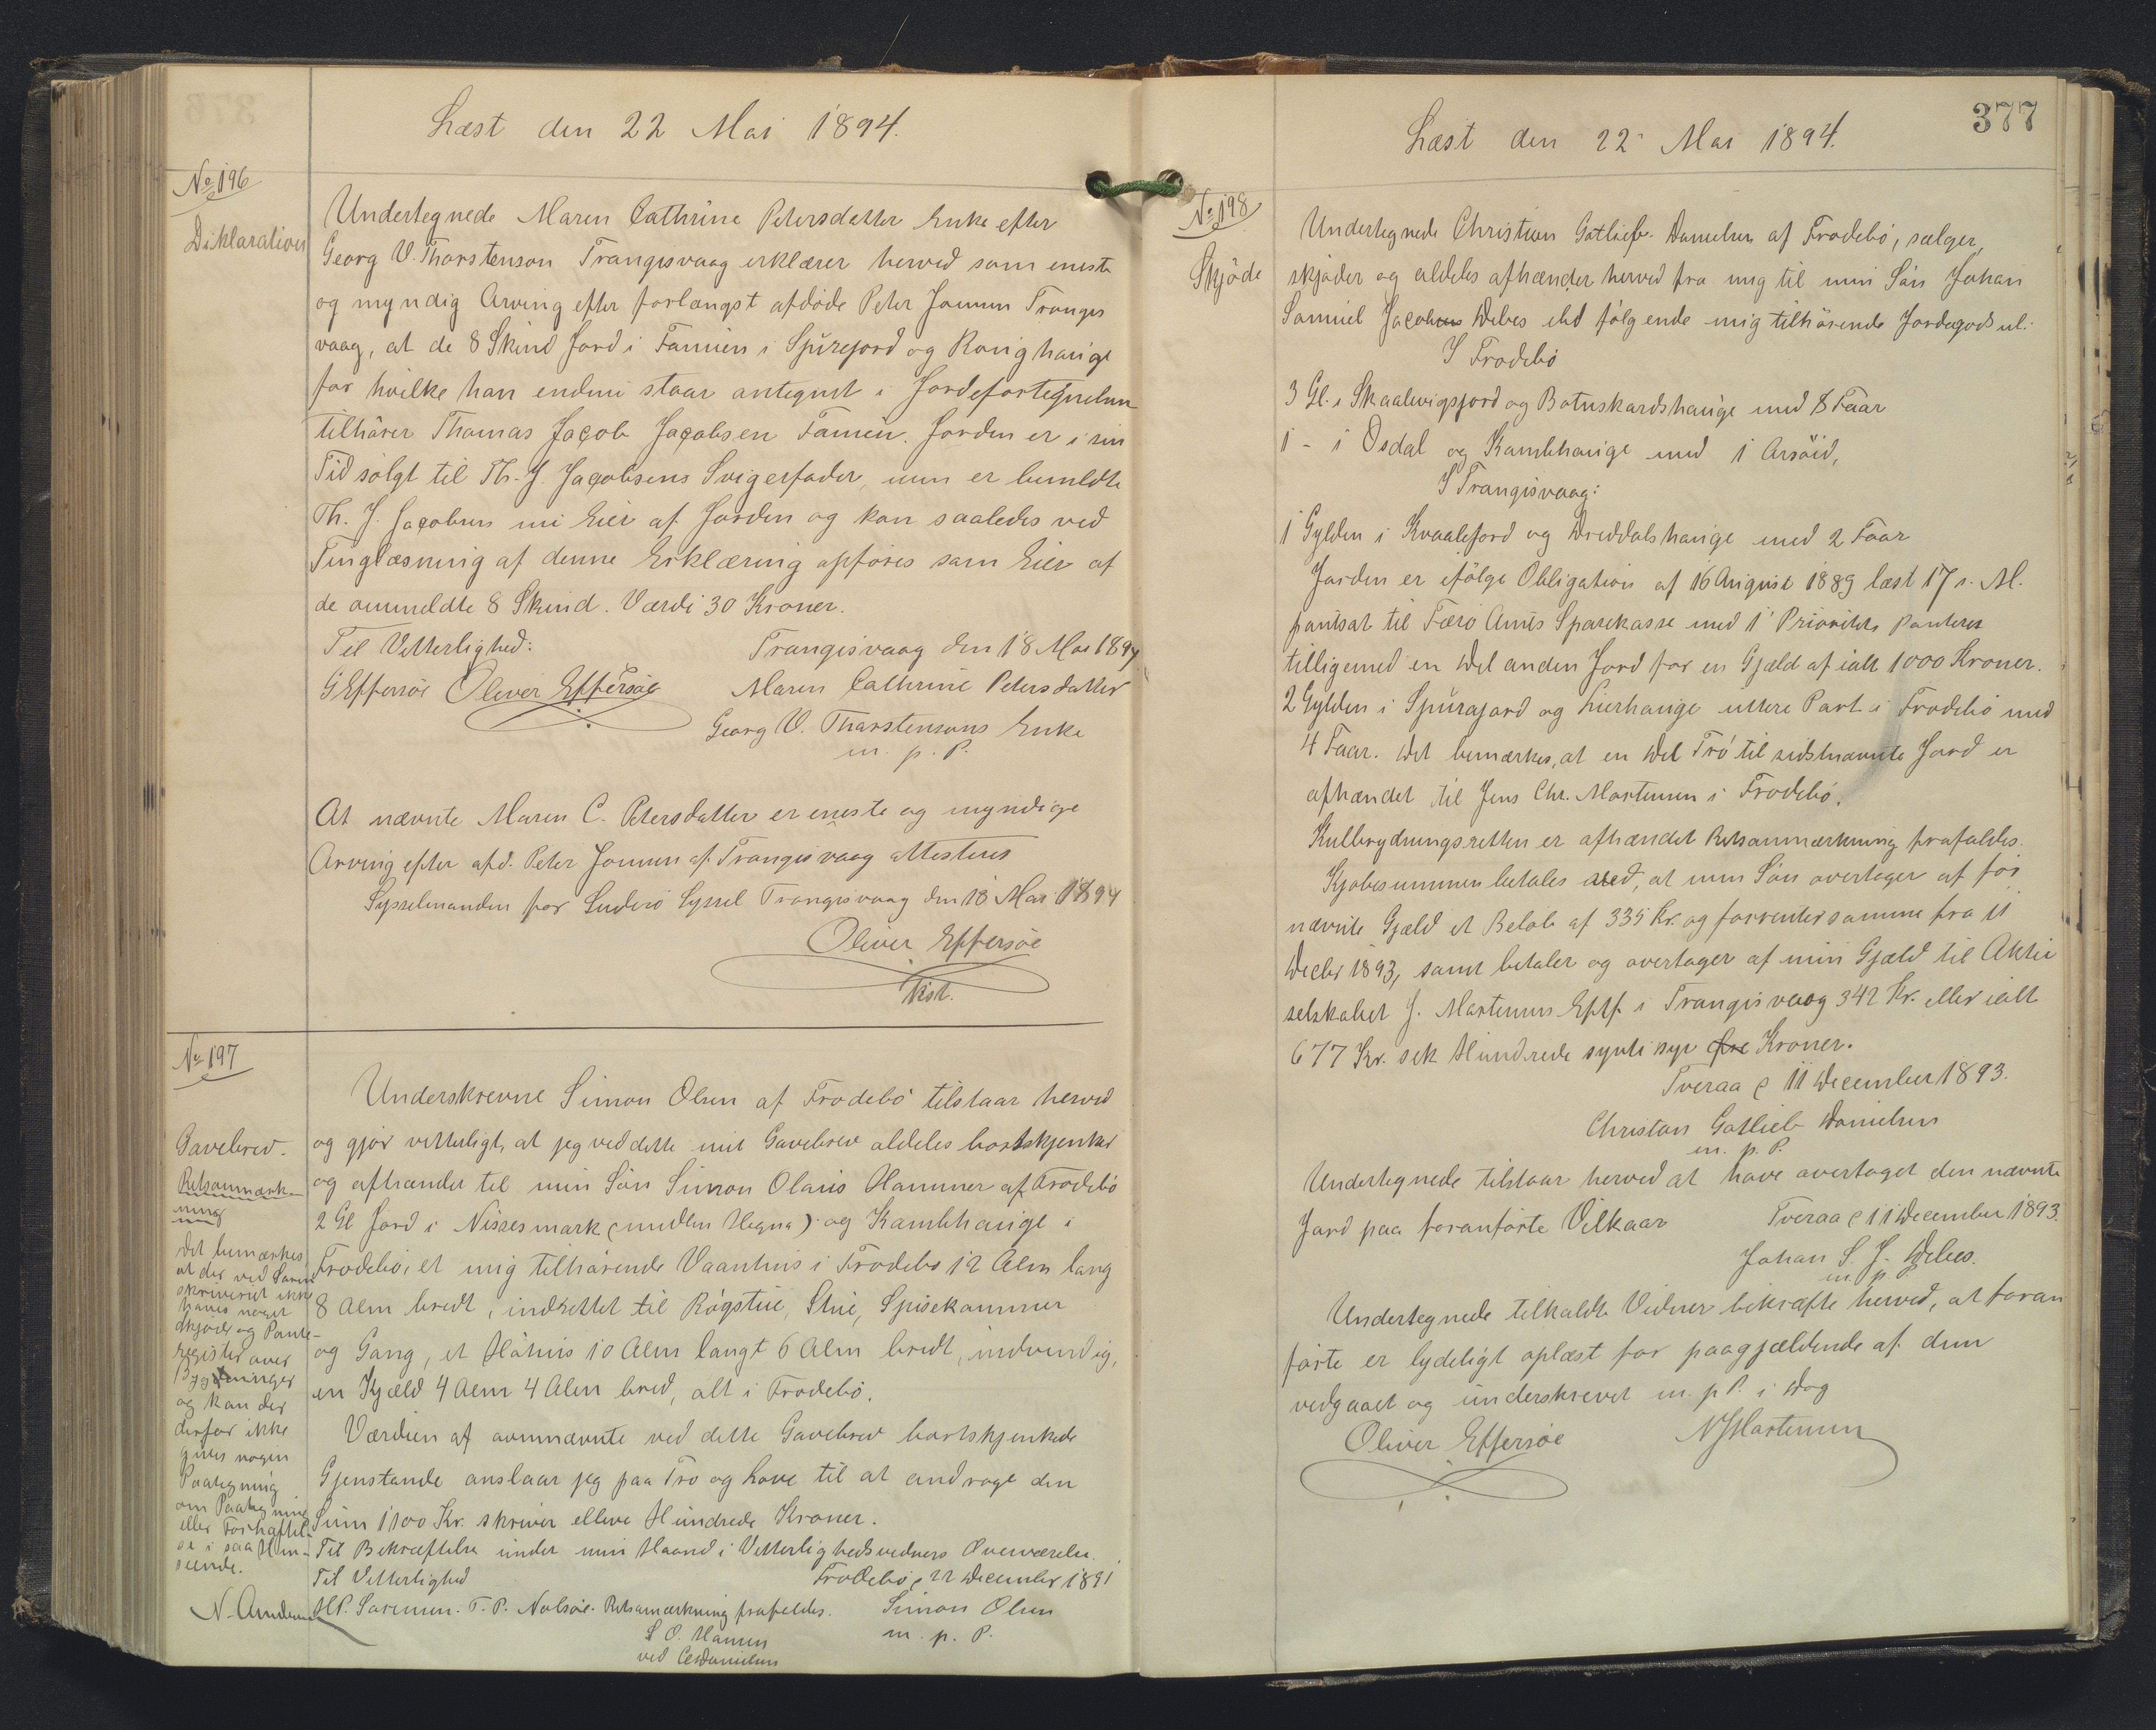 Læst den 22 Mai 1894.
No 196
Deklaration
Undertegnede Maren Cathrine Petersdatter Enke efter
Georg V. Thorstenson Trangisvaag erklærer herved som eneste
og myndig Arving efter forlængst afdøde Peter Joensen Trangis
vaag, at de 8 Skind Jord i Famien i Spurejord og Konighauge
for hvilke han endnu staar antegnet i Jordefortegnelsen
tilhører Thomas Jacob Jacobsen Famien. Jorden er i sin
Tid solgt til Th. J. Jacobsens Svigerfader, men er bemeldte
Th. J. Jacobsen nu Eier af Jorden og kan saaledes ved
Tinglæsning af denne Erklæring opføres som Eier af
de ommeldte 8 Skind. Værdi 30 Kroner.
Til Vitterlighed: Trangisvaag den 18 Mai 1894
G Effersøe Oliver Effersøe Maren Cathrine Petersdatter
Georg V. Thorstensons Enke
m. p. P.
At nævnte Maren C. Petersdatter er eneste og myndige
Arving efter afd. Peter Joensen af Trangisvaag attesteres
Sysselmanden for Suderø Syssel Trangisvaag den 18 Mai 1894
Oliver Effersøe
Kst.
No 197
Gavebrev.
Underskrevne Simon Olsen af Frodebø tilstaar herved
og gjør vitterligt, at jeg ved dette mit Gavebrev aldeles bortskjenker
og afhænder til min Søn Simon Olaus Hammer af Frodebø
2 Gl Jord i Nissesmark (mellem Hegna) og Kambhauge i
Frodebø, et mig tilhørende Vaanhus i Frodebø 12 Alen lang
8 Alen bredt, indrettet til Røgstue, Stue, Spisekammer
og Gang, et Høhus 10 Alen langt 6 Alen bredt, indvendig,
en Kjæld 4 Alen 4 Alen bred, alt i Frodebø.
Værdien af omnævnte ved dette Gavebrev bortskjenkede
Gjenstande anslaar jeg paa Tro og Love til at andrage den
Sum 1100 Kr. skriver elleve Hundrede Kroner.
Til Bekræftelse under min Haand i Vitterlighedsvidners Overværelse.
Til Vitterlighed Frodebø, 22 December 1891
H P. Sørensen. T. P. Nolsøe. Retsanmærkning frafaldes. Simon Olsen
S O. Hamer m. p. P.
ved C Danielsen
Retsanmærk-
ning
Det bemærkes
at der ved Soren
skriveriet ikke
haves noget
Skjøde og Pante-
register over
Bygninger
og kan der
derfor ikke
gives nogen
Paategning
om Paategning
eller Forhæftel-
se i saa Hen-
seende.
N. Andersen
377
Læst den 22 Mai 1894.
No 198
Skjøde
Undertegnede Christian Gotlieb Danielsen af Frodebø, sælger,
skjøder og aldeles afhænder herved fra mig til min Søn Johan
Samuel Jacobus Debes ehd følgende mig tilhørende Jordegods nl:
I Frodebø
3 Gl. i Skaalevigsjord og Botnskardshauge med 8 Faar
1 - i Osdal og Kambhauge med 1 Arsøid,
I Trangisvaag:
1 Gylden i Kvaalejord og Dreddalshauge med 2 Faar
Jorden er ifølge Obligation af 16 August 1889 læst 17 s. M.
pantsat til Færø Amts Sparekasse med 1' Prioritets Panteret
tilligemed en Del anden Jord for en Gjæld af ialt 1000 Kroner.
2 Gylden i Spurajord og Lierhauge uttere Part i Frodebø med
4 Faar. Det bemærkes, at en Del Trø til sidstnævnte Jord er
afhændet til Jens Chr. Mortensen i Frodebø.
Kulbrydningsretten er afhændet Retsanmærkning frafaldes.
Kjøbesummen betales ved, at min Søn overtager af før
nævnte Gjæld et Beløb af 335 Kr. og forrenter samme fra 11
Decbr 1893, samt betaler og overtager af min Gjæld til Aktie
selskabet J. Mortensens Eftf. i Trangisvaag 342 Kr. eller ialt
677 Kr. sek Hundrede sytti syv Kroner.
Tveraa e 11 December 1893.
Christan Gotlieb Danielsen
m. p. P.
Undertegnede tilstaar herved at have overtaget den nævnte
Jord paa foranførte Vilkaar Tveraa e 11 December 1893.
Johan S. J. Debes.
m p P
Undertegnede tilkaldte Vidner bekræfte herved, at foran
førte er lydeligt oplæst for paagjældende af dem
vedgaaet og underskrevet m. p P. i Dag
Oliver Effersøe N J Mortensen